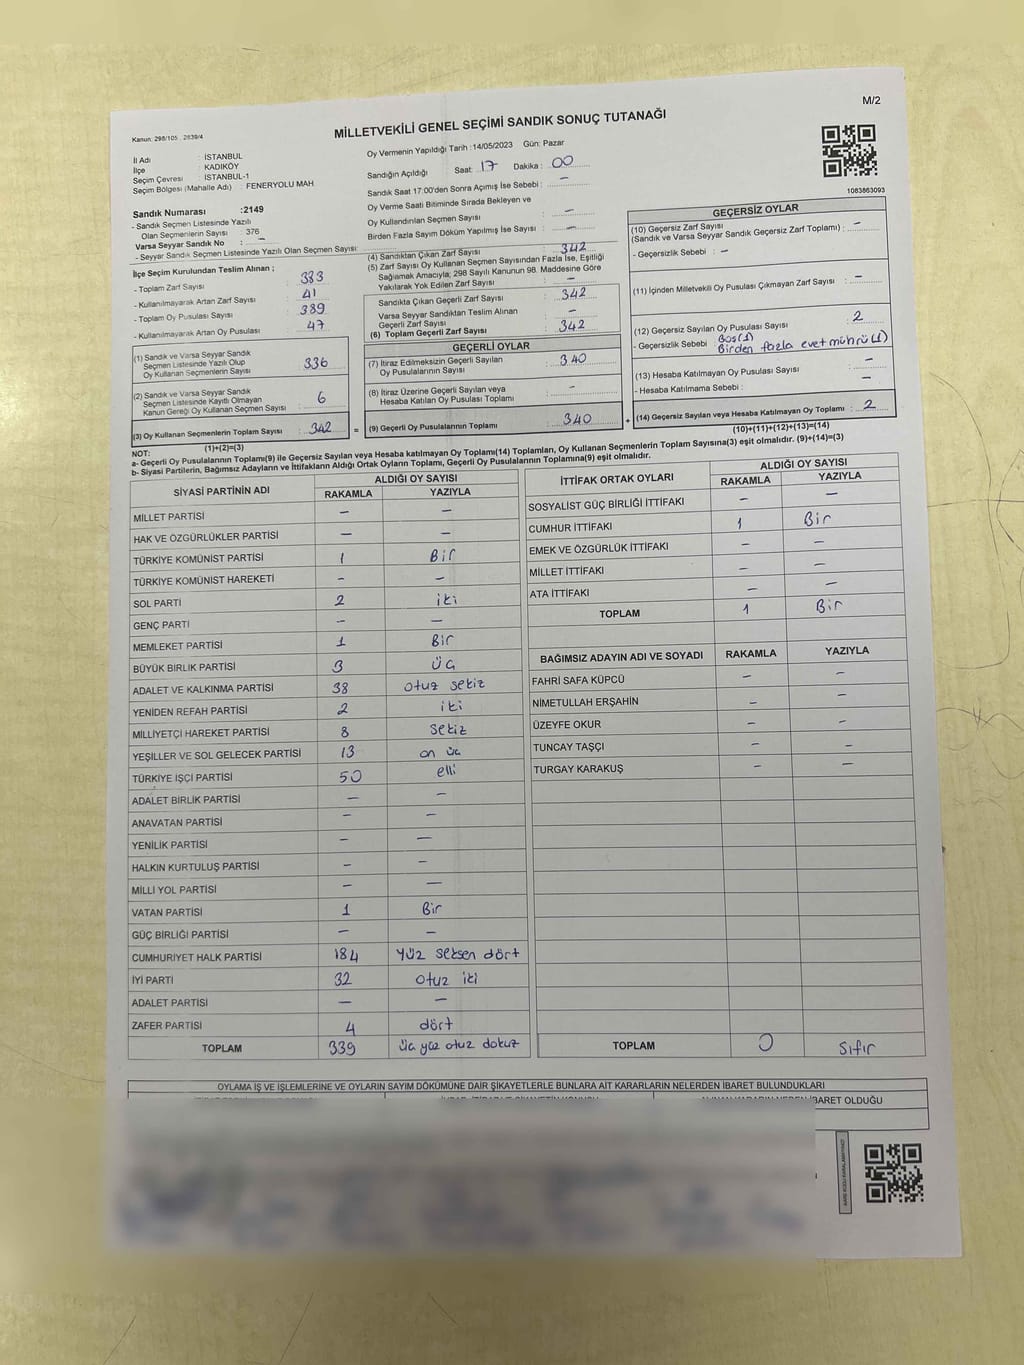 M/2
Kanun: 298/105 , 2839/4
MİLLETVEKİLİ GENEL SEÇİMİ SANDIK SONUÇ TUTANAĞI
İl Adı : İSTANBUL
İlçe : KADIKÖY
Seçim Çevresi : İSTANBUL-1
Seçim Bölgesi (Mahalle Adı) : FENERYOLU MAH
Sandık Numarası :2149
- Sandık Seçmen Listesinde Yazılı
Olan Seçmenlerin Sayısı : 376
Varsa Seyyar Sandık No : –
- Seyyar Sandık Seçmen Listesinde Yazılı Olan Seçmen Sayısı:
İlçe Seçim Kurulundan Teslim Alınan ;
- Toplam Zarf Sayısı 383
- Kullanılmayarak Artan Zarf Sayısı 41
- Toplam Oy Pusulası Sayısı 389
- Kullanılmayarak Artan Oy Pusulası 47
(1) Sandık ve Varsa Seyyar Sandık
Seçmen Listesinde Yazılı Olup
Oy Kullanan Seçmenlerin Sayısı 336
(2) Sandık ve Varsa Seyyar Sandık
Seçmen Listesinde Kayıtlı Olmayan
Kanun Gereği Oy Kullanan Seçmen Sayısı : 6
(3) Oy Kullanan Seçmenlerin Toplam Sayısı : 342 =
(1)+(2)=(3)
Oy Vermenin Yapıldığı Tarih :14/05/2023 Gün: Pazar
Sandığın Açıldığı Saat: 17 Dakika : 00
Sandık Saat 17:00'den Sonra Açımış İse Sebebi : –
Oy Verme Saati Bitiminde Sırada Bekleyen ve
Oy Kullandırılan Seçmen Sayısı : –
Birden Fazla Sayım Döküm Yapılmış İse Sayısı : –
(4) Sandıktan Çıkan Zarf Sayısı : 342
(5) Zarf Sayısı Oy Kullanan Seçmen Sayısından Fazla İse, Eşitliği
Sağlamak Amacıyla; 298 Sayılı Kanunun 98. Maddesine Göre
Yakılarak Yok Edilen Zarf Sayısı : –
Sandıkta Çıkan Geçerli Zarf Sayısı : 342
Varsa Seyyar Sandıktan Teslim Alınan
Geçerli Zarf Sayısı : –
(6) Toplam Geçerli Zarf Sayısı : 342
GEÇERLİ OYLAR
(7) İtiraz Edilmeksizin Geçerli Sayılan
Oy Pusulalarının Sayısı : 340
(8) İtiraz Üzerine Geçerli Sayılan veya
Hesaba Katılan Oy Pusulası Toplamı : –
(9) Geçerli Oy Pusulalarının Toplamı : 340 +
1083863093
GEÇERSİZ OYLAR
(10) Geçersiz Zarf Sayısı
(Sandık ve Varsa Seyyar Sandık Geçersiz Zarf Toplamı) : –
- Geçersizlik Sebebi : –
(11) İçinden Milletvekili Oy Pusulası Çıkmayan Zarf Sayısı : –
(12) Geçersiz Sayılan Oy Pusulası Sayısı : 2
- Geçersizlik Sebebi : Boş(1)
Birden fazla evet mührü(1)
(13) Hesaba Katılmayan Oy Pusulası Sayısı : –
- Hesaba Katılmama Sebebi : –
(14) Geçersiz Sayılan veya Hesaba Katılmayan Oy Toplamı : 2
(10)+(11)+(12)+(13)=(14)
NOT:
a- Geçerli Oy Pusulalarının Toplamı(9) ile Geçersiz Sayılan veya Hesaba katılmayan Oy Toplamı(14) Toplamları, Oy Kullanan Seçmenlerin Toplam Sayısına(3) eşit olmalıdır. (9)+(14)=(3)
b- Siyasi Partilerin, Bağımsız Adayların ve İttifakların Aldığı Ortak Oyların Toplamı, Geçerli Oy Pusulalarının Toplamına(9) eşit olmalıdır.
SİYASİ PARTİNİN ADI ALDIĞI OY SAYISI
RAKAMLA YAZIYLA
MİLLET PARTİSİ – –
HAK VE ÖZGÜRLÜKLER PARTİSİ – –
TÜRKİYE KOMÜNİST PARTİSİ 1 Bir
TÜRKİYE KOMÜNİST HAREKETİ – –
SOL PARTİ 2 iki
GENÇ PARTİ – –
MEMLEKET PARTİSİ 1 Bir
BÜYÜK BİRLİK PARTİSİ 3 üç
ADALET VE KALKINMA PARTİSİ 38 otuz sekiz
YENİDEN REFAH PARTİSİ 2 iki
MİLLİYETÇİ HAREKET PARTİSİ 8 sekiz
YEŞİLLER VE SOL GELECEK PARTİSİ 13 on üç
TÜRKİYE İŞÇİ PARTİSİ 50 elli
ADALET BİRLİK PARTİSİ – –
ANAVATAN PARTİSİ – –
YENİLİK PARTİSİ – –
HALKIN KURTULUŞ PARTİSİ – –
MİLLİ YOL PARTİSİ – –
VATAN PARTİSİ 1 Bir
GÜÇ BİRLİĞİ PARTİSİ – –
CUMHURİYET HALK PARTİSİ 184 yüz seksen dört
İYİ PARTİ 32 otuz iki
ADALET PARTİSİ – –
ZAFER PARTİSİ 4 dört
TOPLAM 339 üç yüz otuz dokuz
İTTİFAK ORTAK OYLARI ALDIĞI OY SAYISI
RAKAMLA YAZIYLA
SOSYALİST GÜÇ BİRLİĞİ İTTİFAKI – –
CUMHUR İTTİFAKI 1 Bir
EMEK VE ÖZGÜRLÜK İTTİFAKI – –
MİLLET İTTİFAKI – –
ATA İTTİFAKI – –
TOPLAM 1 Bir
BAĞIMSIZ ADAYIN ADI VE SOYADI RAKAMLA YAZIYLA
FAHRİ SAFA KÜPCÜ – –
NİMETULLAH ERŞAHİN – –
ÜZEYFE OKUR – –
TUNCAY TAŞÇI – –
TURGAY KARAKUŞ – –
TOPLAM 0 sıfır
OYLAMA İŞ VE İŞLEMLERİNE VE OYLARIN SAYIM DÖKÜMÜNE DAİR ŞİKAYETLERLE BUNLARA AİT KARARLARIN NELERDEN İBARET BULUNDUKLARI
İBARET OLDUĞU